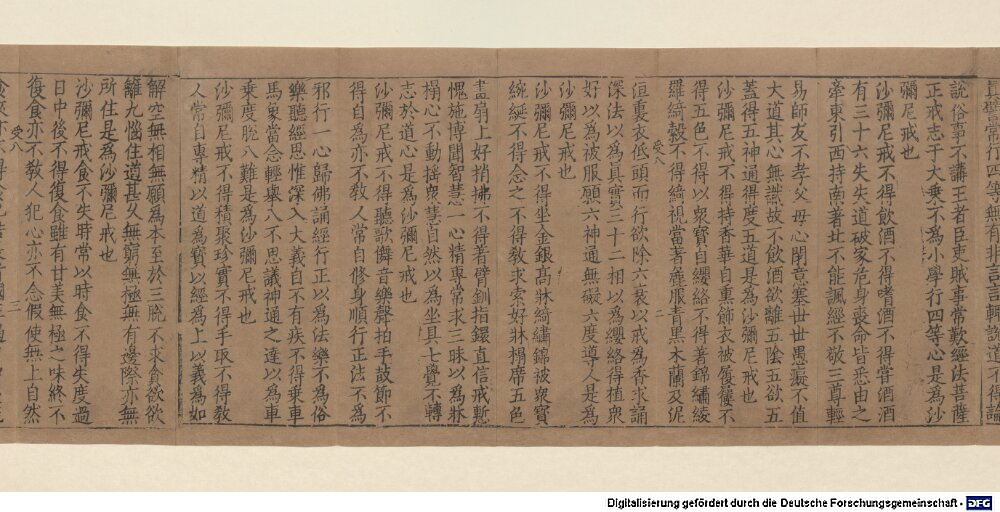 常行四等無有非言言輒說道不得
說俗事不講王者臣吏賊事常歎經法菩薩
正戒志于大乗不為小學行四等心是為沙
彌尼戒也
沙彌尼戒不得飲酒不得嗜酒不得甞酒酒
有三十六失失道破家危身喪命皆悉由之
牽東引西持南著北不能諷經不敬三尊輕
易師友不孝父母心閉意塞世世愚癡不值
大道其心無識故不飲酒欲離五陰五欲五
蓋得五神通得度五道是為沙彌尼戒也
沙彌尼戒不得持香華自熏飾衣被履䪗不
得五色不得以衆寶自纓絡不得著錦繡綾
羅綺縠不得綺視當著麤服青黑木蘭及泥
受八
二
洹裏衣低頭而行欲除六衰以戒為香求誦
深法以為真寶三十二相以為纓絡得植衆
好以為被服願六神通無礙六度導人是為
沙彌尼戒也
沙彌尼戒不得坐金銀髙牀綺繡錦被衆寶
綩綖不得念之不得教求索好牀榻席五色
畫扇上好捎拂不得著臂釧指鐶直信戒慙
愧施博聞智慧一心精專常求三昧以為牀
榻心不動揺衆慧自然以為坐具七覺不轉
志於道心是為沙彌尼戒也
沙彌尼戒不得聽歌儛音樂聲拍手鼓節不
得自為亦不教人常自修身順行正法不為
邪行一心歸佛誦經行正以為法樂不為俗
樂聽經思惟深入大義自不有疾不得乗車
馬象當念輕舉八不思議神通之達以為車
乗度脫八難是為沙彌尼戒也
沙彌尼戒不得積聚珍寶不得手取不得教
人常自專精以道為寶以經為上以義為如
解空無相無願為本至於三脫不求貪欲欲
離九惱住道甚久無窮無極無有邊際亦無
所住是為沙彌尼戒也
沙彌尼戒食不失時常以時食不得失度過
日中後不得復食雖有甘美無極之味終不
復食亦不教人犯心亦不念假使無上自然
受八
三